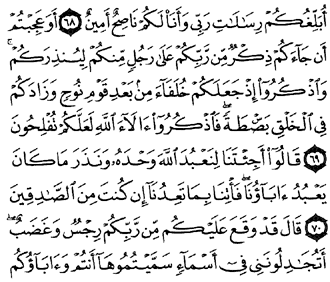 أُبَلِّغُكُمْ رِسَٰلَٰتِ رَبِّى وَأَنَا۠ لَكُمْ نَاصِحٌ أَمِينٌ ٦٨ أَوَعَجِبْتُمْ
أَن جَآءَكُمْ ذِكْرٌ مِّن رَّبِّكُمْ عَلَىٰ رَجُلٍ مِّنكُمْ لِيُنذِرَكُمْ ۚ
وَٱذْكُرُوٓا۟ إِذْ جَعَلَكُمْ خُلَفَآءَ مِنۢ بَعْدِ قَوْمِ نُوحٍ وَزَادَكُمْ
فِى ٱلْخَلْقِ بَصْۜطَةً ۖ فَٱذْكُرُوٓا۟ ءَالَآءَ ٱللَّهِ لَعَلَّكُمْ تُفْلِحُونَ
٦٩ قَالُوٓا۟ أَجِئْتَنَا لِنَعْبُدَ ٱللَّهَ وَحْدَهُۥ وَنَذَرَ مَا كَانَ
يَعْبُدُ ءَابَآؤُنَا ۖ فَأْتِنَا بِمَا تَعِدُنَآ إِن كُنتَ مِنَ ٱلصَّٰدِقِينَ
٧٠ قَالَ قَدْ وَقَعَ عَلَيْكُم مِّن رَّبِّكُمْ رِجْسٌ وَغَضَبٌ ۖ
أَتُجَٰدِلُونَنِى فِىٓ أَسْمَآءٍ سَمَّيْتُمُوهَآ أَنتُمْ وَءَابَآؤُكُم